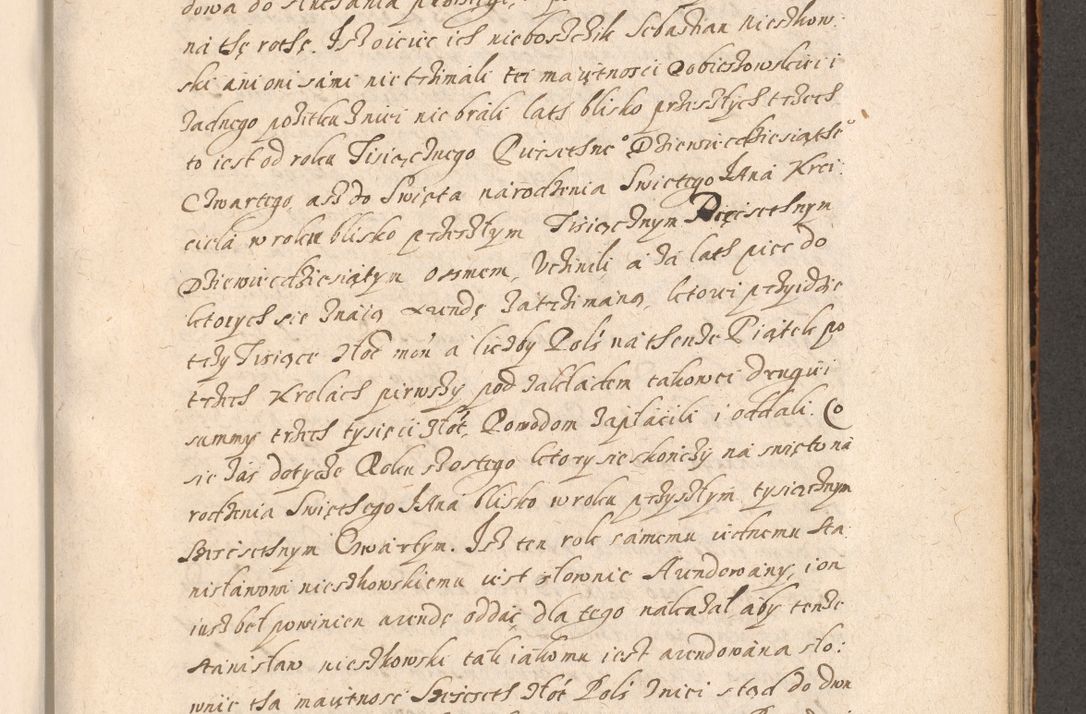 na thę rothę. Isz oiciec ich nieboszczik Sebastian nieszkow-
ski ani oni sami nie trzimali tei maiętnosci Dobieszowskiei i
żadnego pożitku z niei nie brali lath blisko przeszłych trzech
to iest od roku Tisiącznego Pięćsethne° Dziewięćdziesiąthe°
Czwartego, asz do Swięta narodzenia Swiętego Jana Krci-
ciela w roku blisko przeszłym Tisiącznym Pięcisethnym
Dziewięćdziesiątym osmem, Uczinili a za lath pięć do
ktorych się znaią arendę zatrzimaną, ktorei przyidzie
trzy Tisiące złoć mon a liczby Pols na thenże Piątek po
trzech Krolach pirwszy pod zakładem takowei drugiei
summy trzech tysięci złot, Powodom zapłacili i oddali. Co
się zas dotycze Roku szostego ktory się skończy na swięto na
rodzenia Swięthego Jana blisko w roku przyszłym tysiącznym
Szescsethnym Czwartym. Isz ten rok samemu iednemu Sta
nisławowi nieszkowskiemu iest słownie Arendowany, i on
iusz beł powinien arendę oddać, dla tego nakazał, aby tenże
Stanisław nieszkowski tak iakomu iest arendowana sło-
wnie tha maiętnosc Szescseth złot Pols z niei stąd do dwu